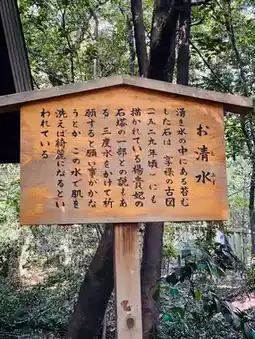 お清水
湧き水の中にある苔む
した石は、享禄の古図
(一五二九年頃)にも
描かれている楊貴妃の
石塔の一部との説もあ
る 三度水をかけて祈
願すると願い事がかな
うとか この水で肌を
洗えば綺麗になるとい
われている